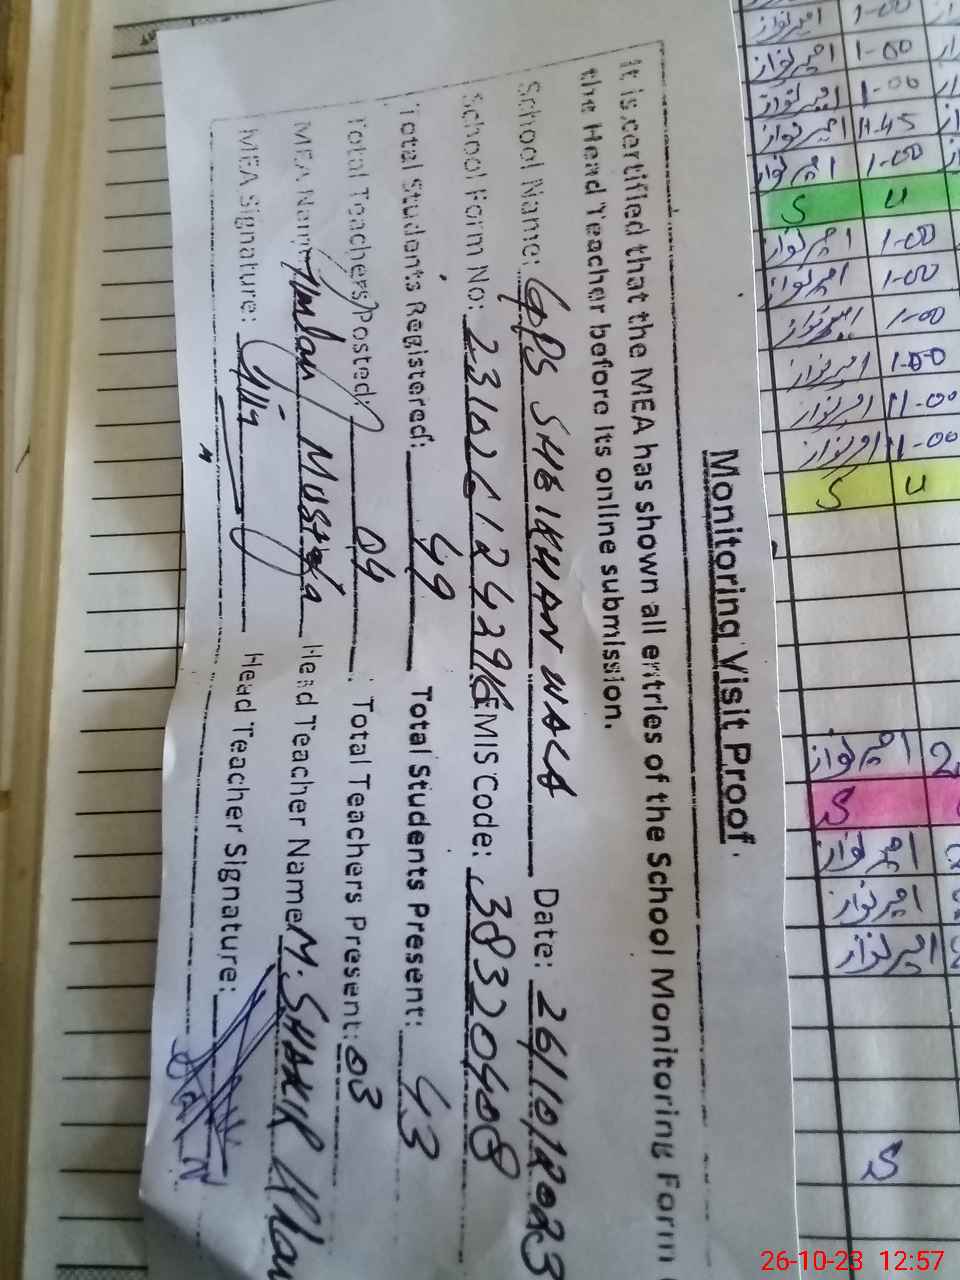 Monitoring Visit Proof.
It is certified that the MEA has shown all entries of the School Monitoring Form
the Head Teacher before its online submission.
School Name: GPS SHEIKHAN WALA Date: 26/10/2023
School Form No: EMIS Code: 38320408
Total Students Registered: 49 Total Students Present: 43
Total Teachers Posted: 04 Total Teachers Present: 03
MEA Name: Mustafa Head Teacher Name: M. SHAKIR Khan
MEA Signature: Head Teacher Signature:
امیر نواز 1-00
امیر نواز 1-00
امیر نواز 1-00
امیر نواز 11-45
امیر نواز 1-00
S u
امیر نواز 1-00
امیر نواز 1-00
امیر نواز 1-00
امیر نواز 1-00
امیر نواز 11-00
امیر نواز 11-00
S u
امیر نواز
S
امیر نواز
امیر نواز
امیر نواز
S
26-10-23 12:57